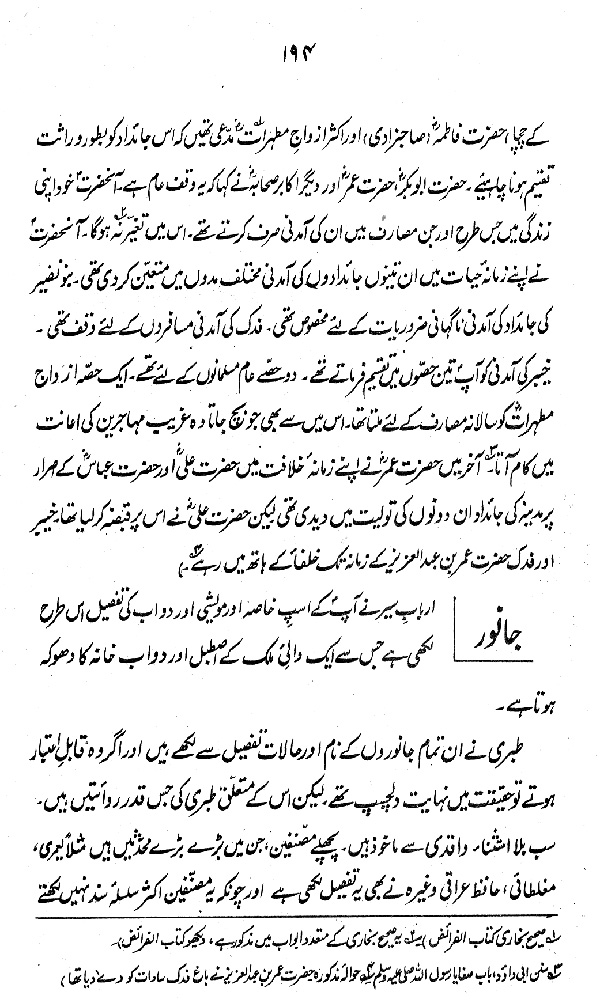 ۱۹۴
کے چچا) حضرت فاطمہؓ (صاحبزادی) اور اکثر ازواج مطہراتؓ مدعی تھیں کہ اس جائداد کو بطور وراثت
تقسیم ہونا چاہیئے۔ حضرت ابوبکرؓ حضرت عمرؓ اور دیگر اکابر صحابہؓ نے کہا کہ یہ وقف عام ہے۔ آنحضرتؐ خود اپنی
زندگی میں جس طرح اور جن مصارف میں ان کی آمدنی صرف کرتے تھے۔ اس میں تغیر نہ ہوگا۔ آنحضرتؐ
نے اپنے زمانۂ حیات میں ان تینوں جائدادوں کی آمدنی مختلف مدوں میں متعین کر دی تھی۔ بنو نضیر
کی جائداد کی آمدنی ناگہانی ضروریات کے لئے مخصوص تھی۔ فدک کی آمدنی مسافروں کے لئے وقف تھی۔
خیبر کی آمدنی کو آپؐ تین حصوں میں تقسیم فرماتے تھے۔ دو حصے عام مسلمانوں کے لئے تھے۔ ایک حصہ ازواج
مطہراتؓ کو سالانہ مصارف کے لئے ملتا تھا۔ اس میں سے بھی جو بچ جاتا وہ غریب مہاجرین کی اعانت
میں کام آتا۔ آخر میں حضرت عمرؓ نے اپنے زمانہ خلافت میں حضرت علیؓ اور حضرت عباسؓ کے اصرار
پر مدینہ کی جائداد ان دونوں کی تولیت میں دیدی تھی لیکن حضرت علیؓ نے اس پر قبضہ کر لیا تھا۔ خیبر
اور فدک حضرت عمر بن عبدالعزیز کے زمانہ تک خلفاء کے ہاتھ میں رہے۔
جانور
ارباب سیر نے آپؐ کے اسپِ خاصہ اور مویشی اور دواب کی تفصیل اس طرح
لکھی ہے جس سے ایک والیٔ ملک کے اصطبل اور دواب خانہ کا دھوکہ
ہوتا ہے۔
طبری نے ان تمام جانوروں کے نام اور حالات تفصیل سے لکھے ہیں اور اگر وہ قابل اعتبار
ہوتے تو حقیقت میں نہایت دلچسپ تھے۔ لیکن اس کے متعلق طبری کی جس قدر روائتیں ہیں۔
سب بلا استثناء واقدی سے ماخوذ ہیں۔ پچھلے مصنفین، جن میں بڑے بڑے محدثین ہیں مثلاً یعمری،
مغلطائی، حافظ عراقی وغیرہ نے بھی یہ تفصیل لکھی ہے اور چونکہ یہ مصنفین اکثر سلسلۂ سند نہیں لکھتے
لہ صحیح بخاری کتاب الفرائض) یہ صحیح بخاری کے متعدد ابواب میں مذکور ہے، دیکھو کتاب الفرائض)۔
سنن ابی داؤد، باب صفایا رسول اللہ صلی علیہ وسلم حوالہ مذکورہ حضرت عمر بن عبدالعزیز نے باغ فدک سادات کو دے دیا تھا)